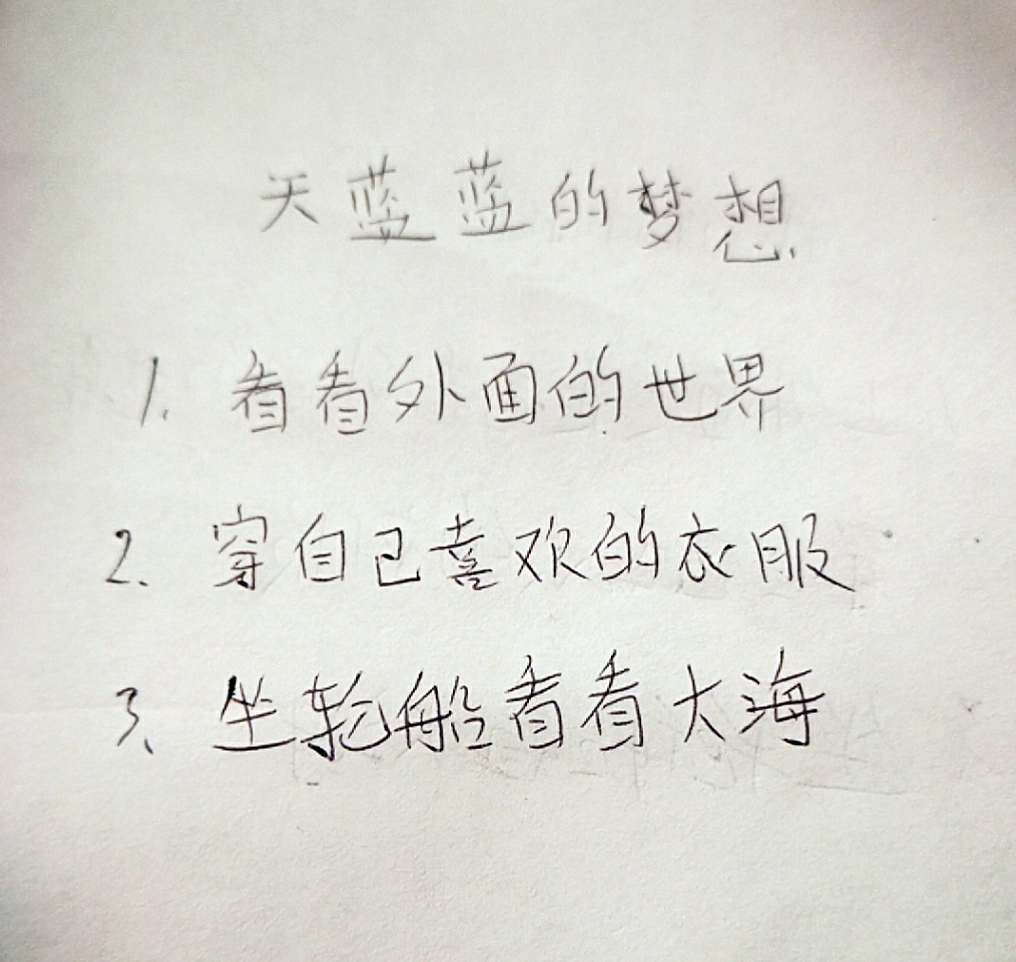 天蓝蓝的梦想
1. 看看外面的世界
2. 穿自己喜欢的衣服
3、坐轮船看看大海